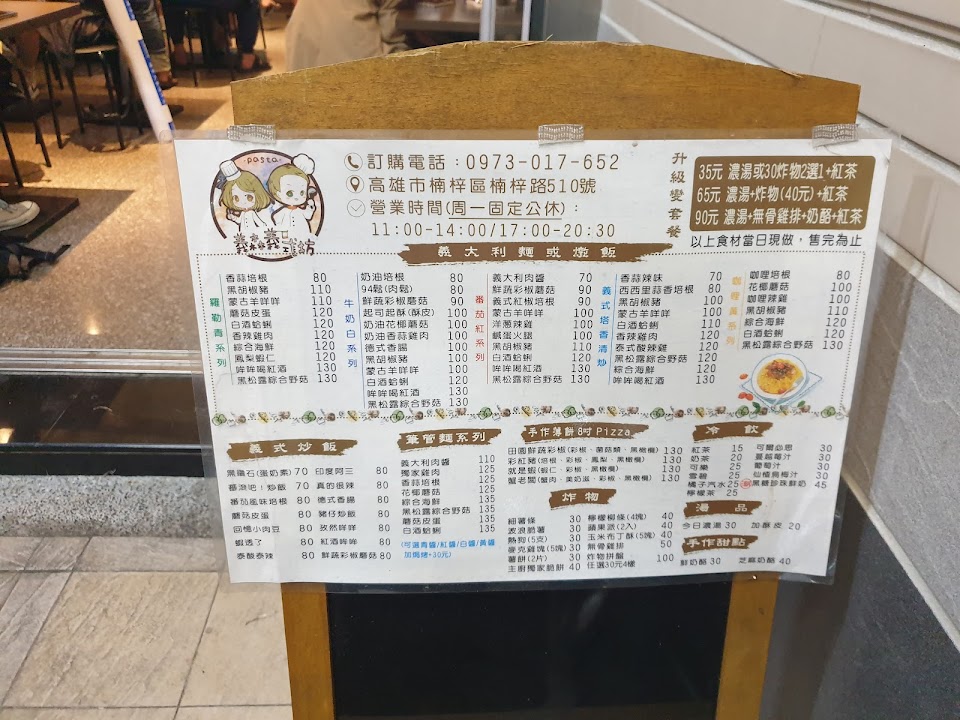 pasta
訂購電話：0973-017-652
高雄市楠梓區楠梓路510號
營業時間(周一固定公休)：
11:00-14:00/17:00-20:30
升級變套餐
35元 濃湯或30炸物2選1+紅茶
65元 濃湯+炸物(40元)+紅茶
90元 濃湯+無骨雞排+奶酪+紅茶
以上食材當日現做，售完為止
義大利麵或燉飯
羅勒青系列
香蒜培根 80
黑胡椒豬 110
蒙古羊咩咩 110
蘑菇皮蛋 120
白酒蛤蜊 120
香辣雞肉 120
綜合海鮮 120
鳳梨蝦仁 120
哞哞喝紅酒 130
黑松露綜合野菇 130
牛奶白系列
奶油培根 80
94鬆(肉鬆) 80
鮮蔬彩椒蘑菇 90
起司起酥(酥皮) 100
奶油花椰蘑菇 100
德式香腸 100
黑胡椒豬 100
蒙古羊咩咩 100
白酒蛤蜊 120
綜合海鮮 120
哞哞喝紅酒 130
黑松露綜合野菇 130
番茄紅系列
義大利肉醬 70
鮮蔬彩椒蘑菇 90
義式紅椒培根 90
蒙古羊咩咩 100
洋蔥辣雞 100
鹹蛋火腿 100
黑胡椒豬 110
白酒蛤蜊 120
哞哞喝紅酒 130
黑松露綜合野菇 130
義式塔香清炒
香蒜辣味 70
西西里蒜香培根 80
黑胡椒豬 100
蒙古羊咩咩 100
白酒蛤蜊 110
香辣雞肉 120
泰式酸辣雞 120
黑松露綜合野菇 130
綜合海鮮 120
哞哞喝紅酒 130
咖哩黃系列
咖哩培根 80
花椰蘑菇 100
咖哩辣雞 100
黑胡椒豬 110
綜合海鮮 120
白酒蛤蜊 120
黑松露綜合野菇 130
義式炒飯
黑礦石(蛋奶素) 70 印度阿三 80
蕃滾吧！炒飯 70 真的很辣 80
番茄風味培根 80 德式香腸 80
蘑菇皮蛋 80 豬仔炒飯 80
回憶小肉豆 80 孜然咩咩 80
蝦透了 80 紅酒哞哞 80
泰酸泰辣 80 鮮蔬彩椒蘑菇 80
筆管麵系列
義大利肉醬 110
獨家雞肉 125
香蒜培根 125
花椰蘑菇 125
黑胡椒豬 125
綜合海鮮 135
黑松露綜合野菇 135
蘑菇皮蛋 135
白酒蛤蜊 135
(可選青醬/紅醬/白醬/黃醬
加焗烤+30元)
手作薄餅8吋Pizza
田園鮮蔬彩椒(彩椒、菌菇類、黑橄欖) 130
彩紅豬(培根、彩椒、鳳梨、黑橄欖) 130
就是蝦(蝦仁、彩椒、黑橄欖) 130
蟹老闆(蟹肉、美奶滋、彩椒、黑橄欖) 130
炸物
細薯條 30
波浪脆薯 30
熱狗(5支) 30
麥克雞塊(5塊) 30
薯餅(2片) 30
主廚獨家脆餅 40
檸檬柳條(4塊) 40
蘋果派(2入) 40
玉米布丁酥(5塊) 40
無骨雞排 50
炸物拼盤 100
任選30元4樣
冷飲
紅茶 15
奶茶 20
可樂 25
雪碧 25
橘子汽水 25
檸檬茶 25
可爾必思 30
蔓越莓汁 30
葡萄汁 30
仙楂烏梅汁 30
黑糖珍珠鮮奶 45
湯品
今日濃湯 30 加酥皮 20
手作甜點
鮮奶酪 30 芝麻奶酪 40